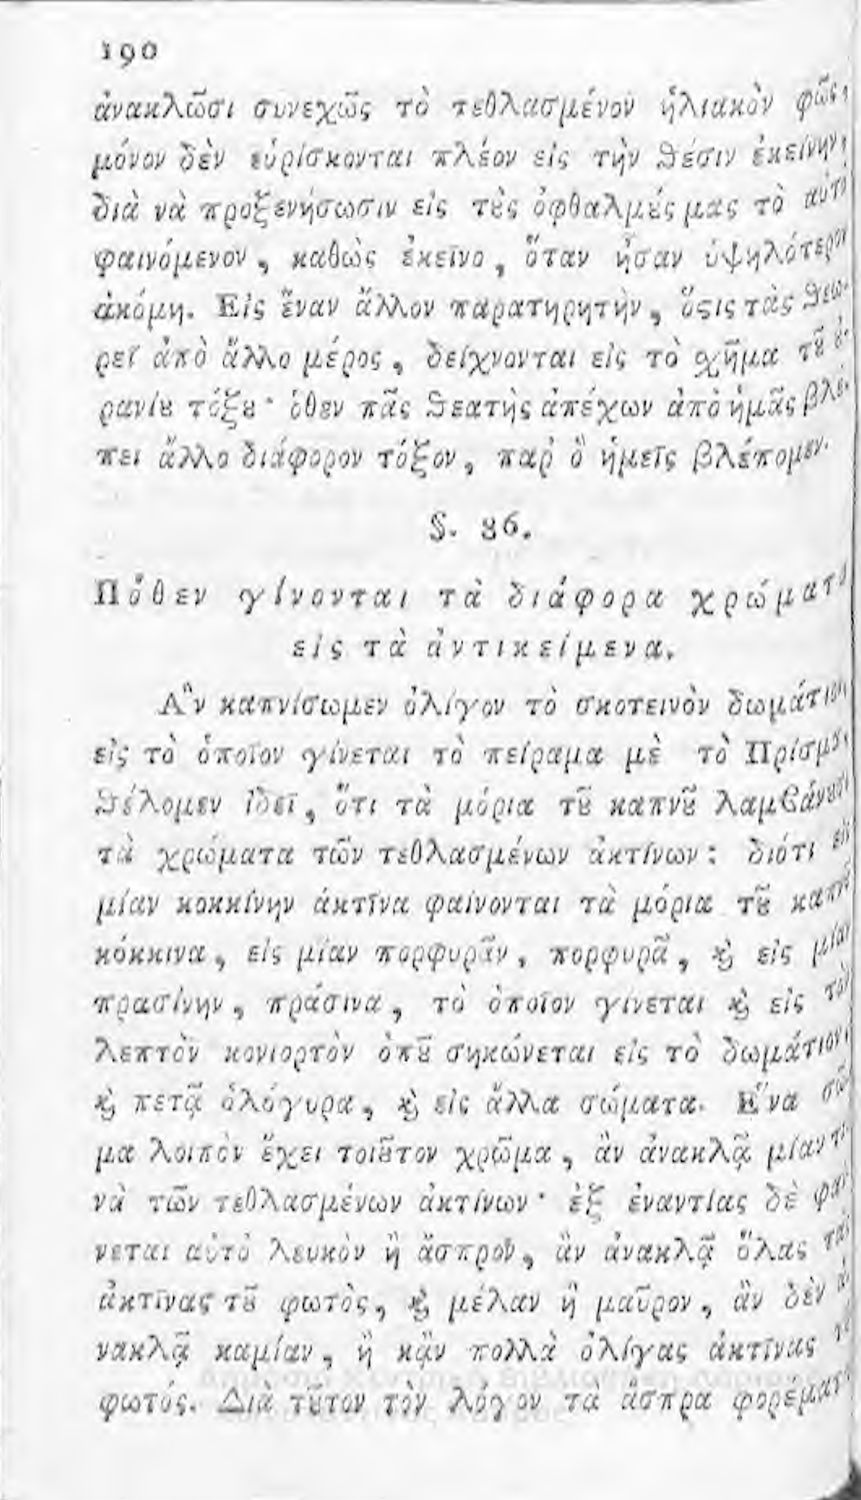 190
ἀνακλῶσι συνεχῶς τὸ τεθλασμένον ἡλιακὸν φῶς,
μόνον δὲν εὑρίσκονται πλέον εἰς τὴν θέσιν ἐκείνην,
διὰ νὰ προξενήσωσιν εἰς τὰς ὀφθαλμȣ́ς μας τὸ αὐτὸ
φαινόμενον, καθὼς ἐκεῖνο, ὅταν ἦσαν ὑψηλότεροι
ἀκόμη. Εἰς ἕναν ἄλλον παρατηρητὴν, ὅϛις τὰς θεω-
ρεῖ ἀπὸ ἄλλο μέρος, δείχνονται εἰς τὸ σχῆμα τȣ͂ ȣ̓-
ρανίȣ τόξȣ· ὅθεν πᾶς θεατὴς ἀπέχων ἀπὸ ἡμᾶς βλέ-
πει ἄλλο διάφορον τόξον, παρ ὃ ἡμεῖς βλέπομεν.
§. 86.
Πόθεν γίνονται τὰ διάφορα χρώματα
εἰς τὰ ἀντικείμενα.
Ἂν καπνίσωμεν ὀλίγον τὸ σκοτεινὸν δωμάτιον,
εἰς τὸ ὁποῖον γίνεται τὸ πείραμα μὲ τὸ Πρίσμα,
θέλομεν ἰδεῖ, ὅτι τὰ μόρια τȣ͂ καπνȣ͂ λαμβάνȣσι
τὰ χρώματα τῶν τεθλασμένων ἀκτίνων: διότι εἰς
μίαν κοκκίνην ἀκτῖνα φαίνονται τὰ μόρια τȣ͂ καπνȣ͂
κόκκινα, εἰς μίαν πορφυρᾶν, πορφυρᾶ, ϗ εἰς μίαν
πρασίνην, πράσινα, τὸ ὁποῖον γίνεται ϗ εἰς τὸν
λεπτὸν κονιορτὸν ὁπȣ͂ σηκώνεται εἰς τὸ δωμάτιον,
ϗ πετᾷ ὁλόγυρα, ϗ εἰς ἄλλα σώματα. Ἕνα σῶ-
μα λοιπὸν ἔχει τοιȣ͂τον χρῶμα, ἂν ἀνακλᾷ μίαν τι-
νὰ τῶν τεθλασμένων ἀκτίνων· ἐξ ἐναντίας δὲ φαί-
νεται αὐτὸ λευκὸν ἢ ἄσπρον, ἂν ἀνακλᾷ ὅλας τὰς
ἀκτῖνας τȣ͂ φωτὸς, ϗ μέλαν ἢ μαῦρον, ἂν δὲν ἀ-
νακλᾷ καμίαν, ἢ κᾂν πολλὰ ὀλίγας ἀκτῖνας τȣ͂
φωτός. Διὰ τȣ͂τον τὸν λόγον τὰ ἄσπρα φορέματα